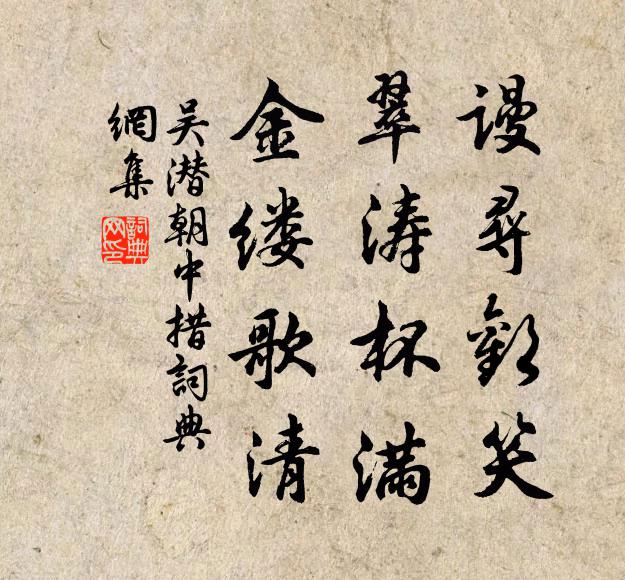 谩尋歡笑
翠涛杯满
金缕歌清
吴潜朝中措詞典
網集
詞典
网印